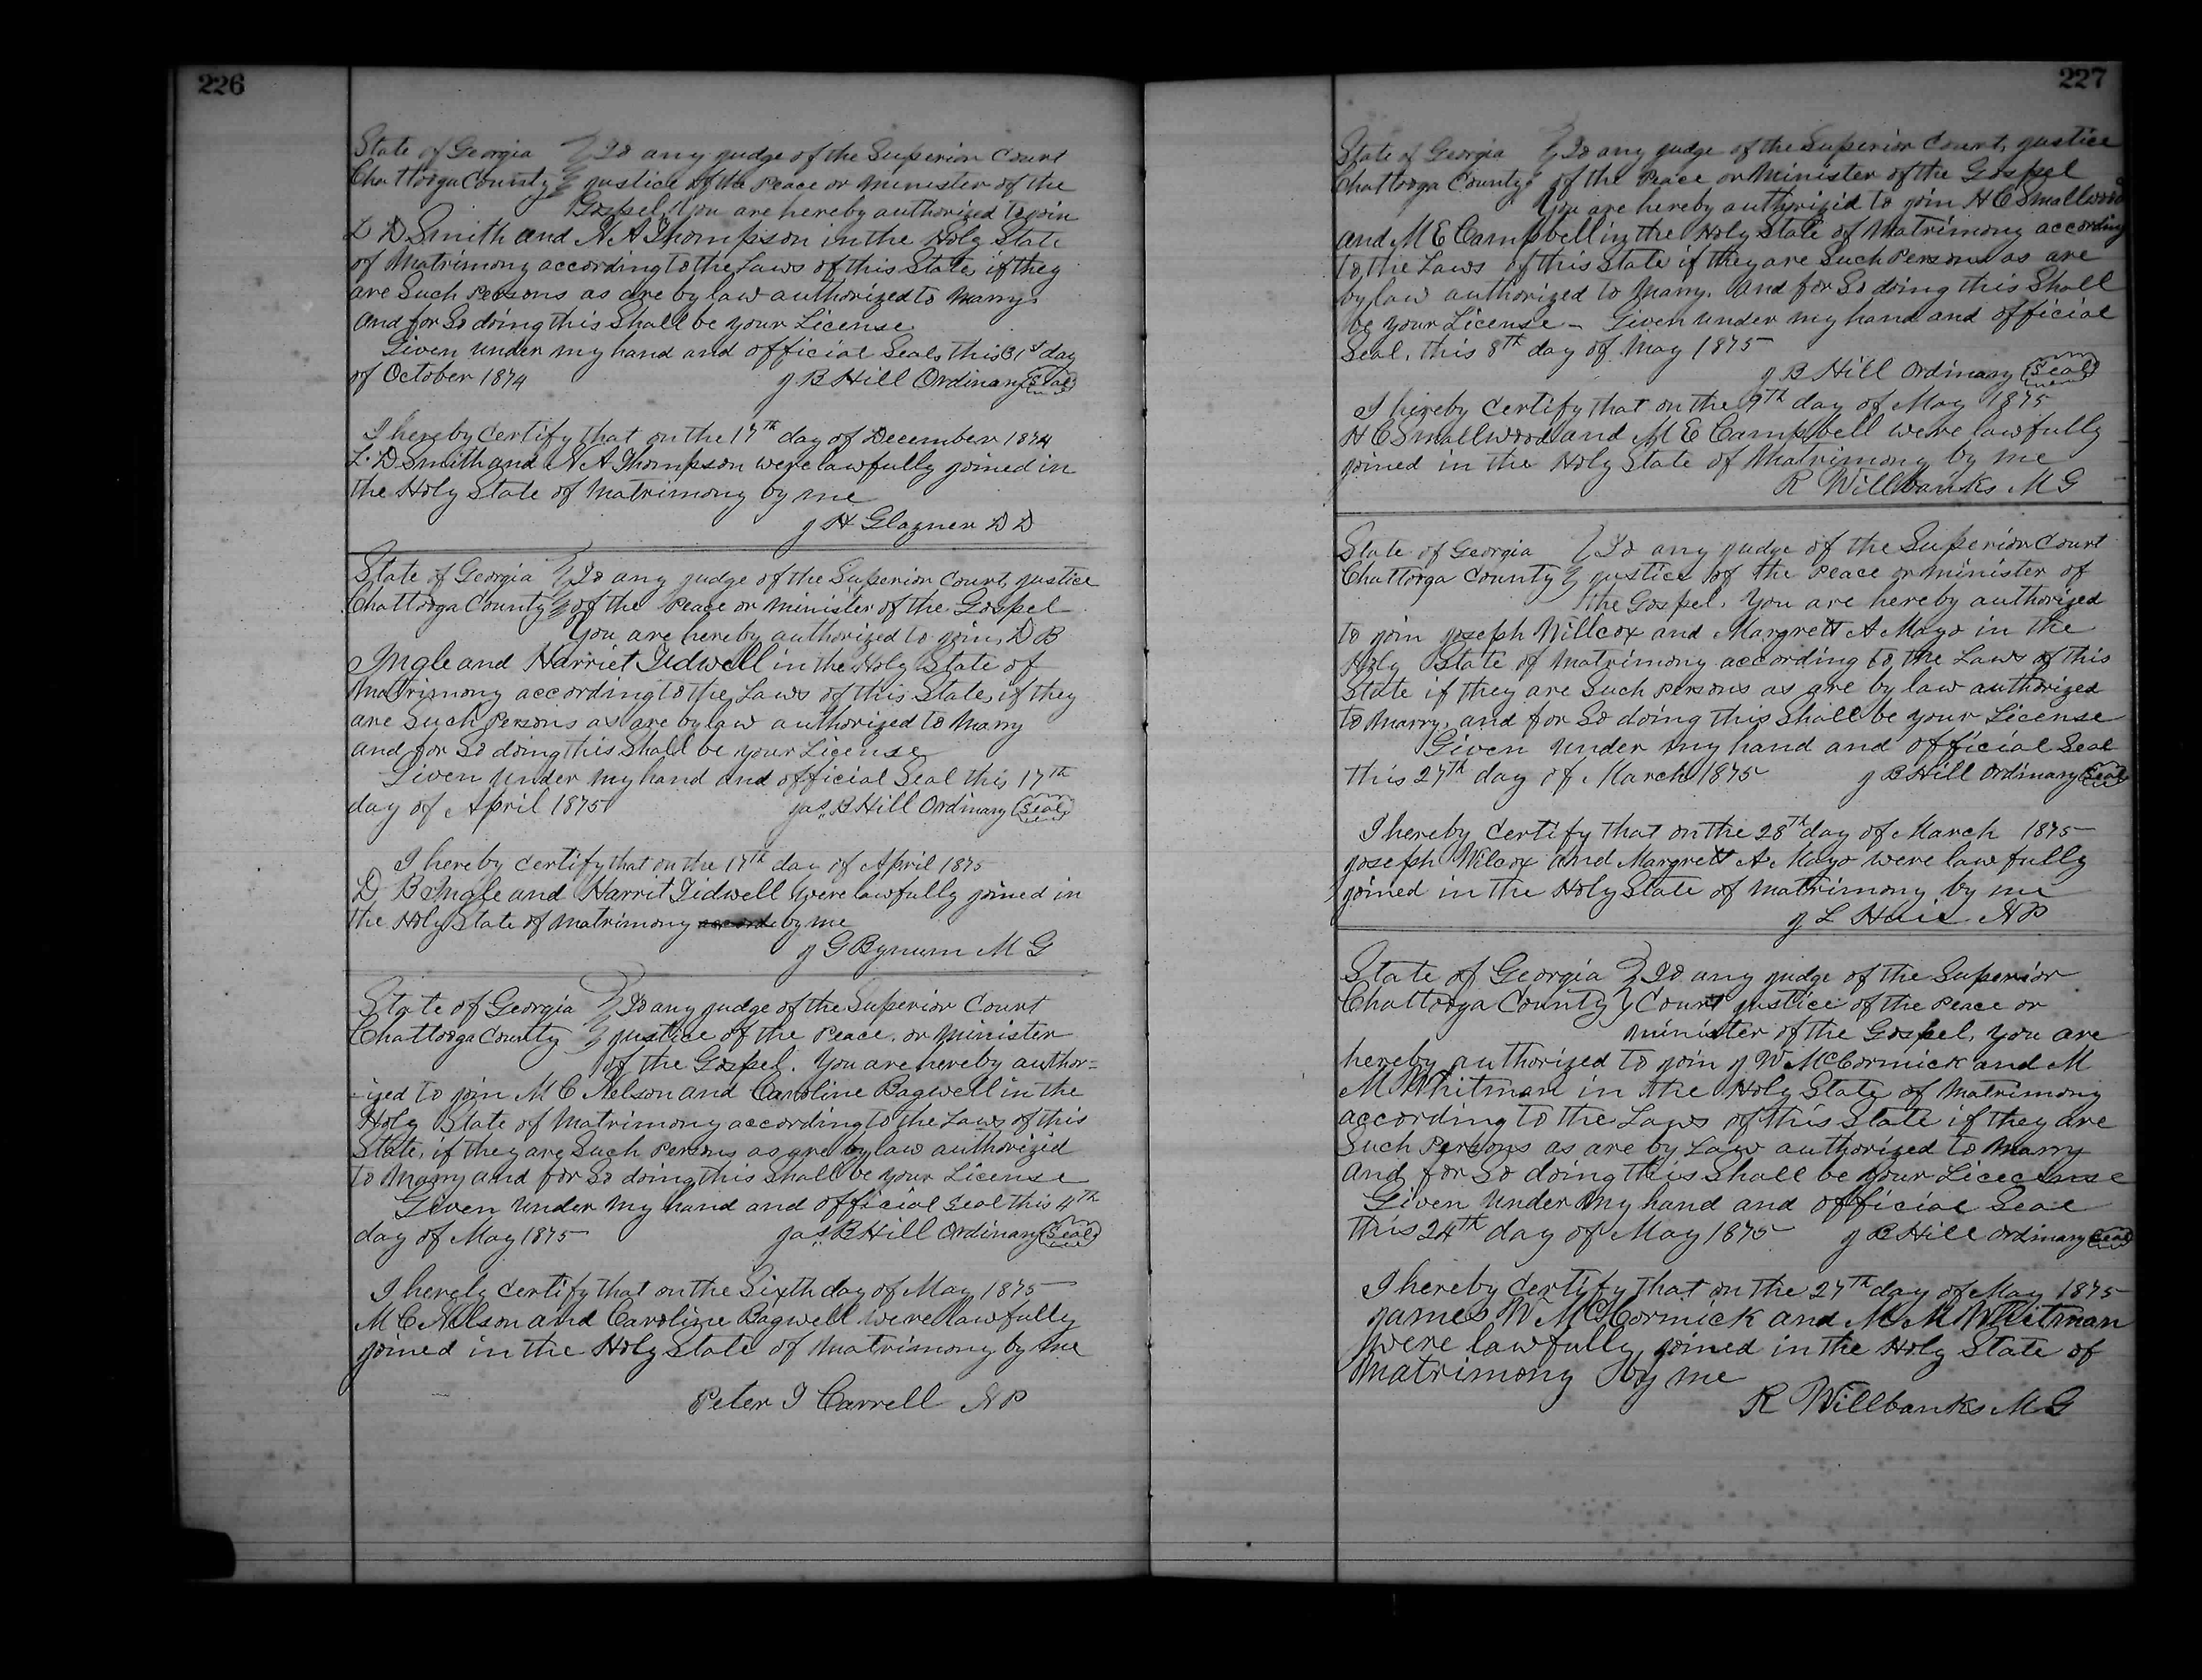 226
State of Georgia } To any judge of the Superior Court
Chattooga County } justice of the Peace or Minister of the
Gospel, You are hereby authorized to join
L D Smith and N A Thompson in the Holy State
of Matrimony according to the Laws of this State, if they
are Such Persons as are by law authorized to Marry.
And for So doing this Shall be your License
Given under my hand and official Seal, this 31st day
of October 1874 J B Hill Ordinary (Seal)
I hereby certify that on the 17th day of December 1874
L. D Smith and N A Thompson were lawfully joined in
the Holy State of Matrimony by me
J H Glazner D D
State of Georgia } To any judge of the Superior Court, justice
Chattooga County } of the Peace or minister of the Gospel
You are hereby authorized to join, D B
Ingle and Harriet Tidwell in the Holy State of
Matrimony according to the Laws of this State, if they
are Such Persons as are by law authorized to Marry
and for So doing this Shall be your License
Given under my hand and official Seal this 17th
day of April 1875 Jas B Hill Ordinary (Seal)
I hereby certify that on the 17th day of April 1875
D B Ingle and Harrit Tidwell were lawfully joined in
the Holy State of Matrimony by me
J G Bynum M G
State of Georgia } To any judge of the Superior Court
Chattooga County } justice of the Peace, or Minister
of the Gospel. You are hereby author=
-ized to join M C Nelson and Caroline Bagwell in the
Holy State of Matrimony according to the Laws of this
State, if they are Such Persons as are by law authorized
to Marry and for So doing this Shall be your License
Given under my hand and official Seal this 4th
day of May 1875 Jas B Hill Ordinary (Seal)
I hereby certify that on the Sixth day of May 1875
M C Nelson and Caroline Bagwell were lawfully
joined in the Holy State of Matrimony by me
Peter I Carrell N P
227
State of Georgia } To any judge of the Superior Court, justice
Chattooga County } of the Peace or Minister of the Gospel
You are hereby authorized to join H C Smallwood
and M E Campbell in the Holy State of Matrimony according
to the Laws of this State if they are Such Persons as are
by law authorized to Marry. and for So doing this Shall
be your License - Given under my hand and official
Seal, this 8th day of May 1875
J B Hill Ordinary (Seal)
I hereby certify that on the 9th day of May 1875
H C Smallwood and M E Campbell were lawfully
joined in the Holy State of Matrimony by me
R Willbanks M G
State of Georgia } To any judge of the Superior Court
Chattooga County } justice of the Peace or minister of
the Gospel, You are hereby authorized
to join Joseph Willcox and Margrett A Mayo in the
Holy State of Matrimony according to the Laws of this
State if they are Such persons as are by law authorized
to Marry, and for So doing this Shall be your License
Given under my hand and official Seal
this 27th day of March 1875 J B Hill Ordinary (Seal)
I hereby certify that on the 28th day of March 1875
Joseph Wilcox and Margrett A Mayo were lawfully
joined in the Holy State of Matrimony by me
J L Huie N P
State of Georgia } To any judge of the Superior
Chattooga County } Court justice of the Peace or
minister of the Gospel, You are
hereby authorized to join J W McCormick and M
M Whitman in the Holy State of Matrimony
according to the Laws of this State if they are
Such Persons as are by Law authorized to Marry
and for So doing this Shall be your Licecense
Given under my hand and official Seal
this 24th day of May 1875 J B Hill Ordinary (Seal)
I hereby certify that on the 27th day of May 1875
James W McCormick and M M Whitman
were lawfully joined in the Holy State of
Matrimony by me
R Willbanks M G